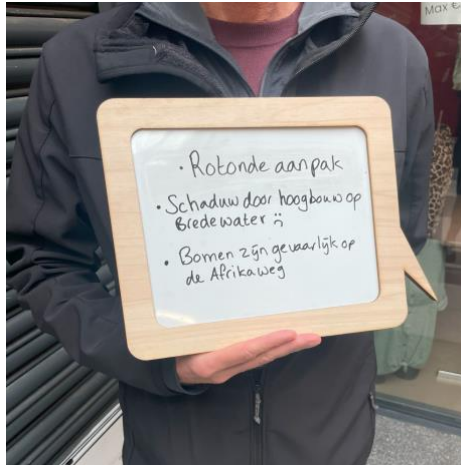 Max €
· Rotonde aanpak
· Schaduw door hoogbouw op
Bredewater :(
· Bomen zijn gevaarlijk op
de Afrikaweg